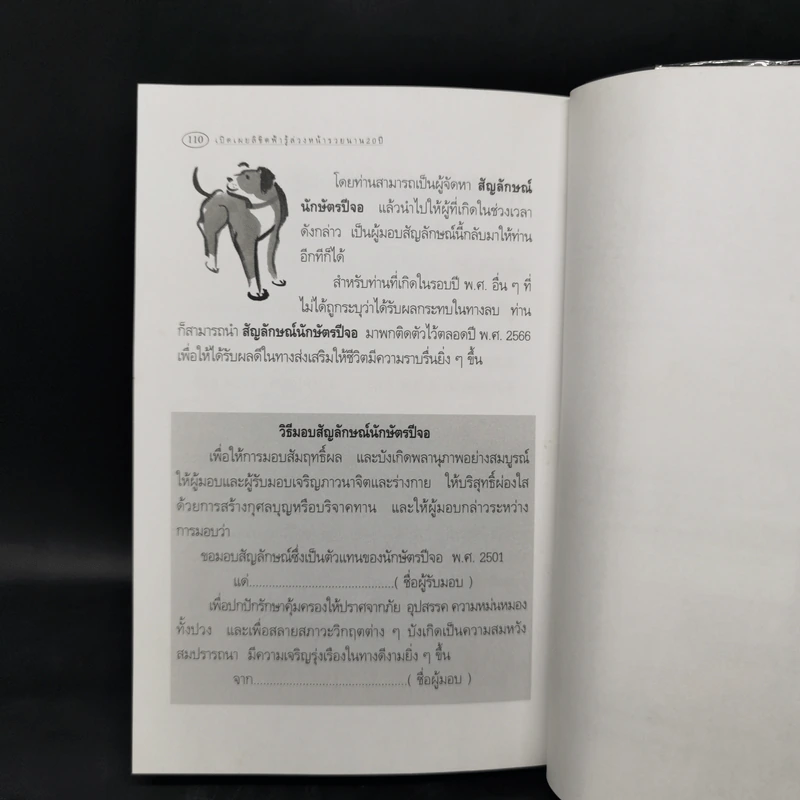 110 เปิดเผยลิขิตฟ้ารู้ล่วงหน้ารวยนาน20ปี
โดยท่านสามารถเป็นผู้จัดหา สัญลักษณ์
นักษัตรปีจอ แล้วนำไปให้ผู้ที่เกิดในช่วงเวลา
ดังกล่าว เป็นผู้มอบสัญลักษณ์นี้กลับมาให้ท่าน
อีกทีก็ได้
สำหรับท่านที่เกิดในรอบปี พ.ศ. อื่น ๆ ที่
ไม่ได้ถูกระบุว่าได้รับผลกระทบในทางลบ ท่าน
ก็สามารถนำ สัญลักษณ์นักษัตรปีจอ มาพกติดตัวไว้ตลอดปี พ.ศ. 2566
เพื่อให้ได้รับผลดีในทางส่งเสริมให้ชีวิตมีความราบรื่นยิ่ง ๆ ขึ้น
วิธีมอบสัญลักษณ์นักษัตรปีจอ
เพื่อให้การมอบสัมฤทธิ์ผล และบังเกิดพลานุภาพอย่างสมบูรณ์
ให้ผู้มอบและผู้รับมอบเจริญภาวนาจิตและร่างกาย ให้บริสุทธิ์ผ่องใส
ด้วยการสร้างกุศลบุญหรือบริจาคทาน และให้ผู้มอบกล่าวระหว่าง
การมอบว่า
ขอมอบสัญลักษณ์ซึ่งเป็นตัวแทนของนักษัตรปีจอ พ.ศ. 2501
แด่..........................................( ชื่อผู้รับมอบ )
เพื่อปกปักรักษาคุ้มครองให้ปราศจากภัย อุปสรรค ความหม่นหมอง
ทั้งปวง และเพื่อสลายสภาวะวิกฤตต่าง ๆ บังเกิดเป็นความสมหวัง
สมปรารถนา มีความเจริญรุ่งเรืองในทางดีงามยิ่ง ๆ ขึ้น
จาก............................................( ชื่อผู้มอบ )